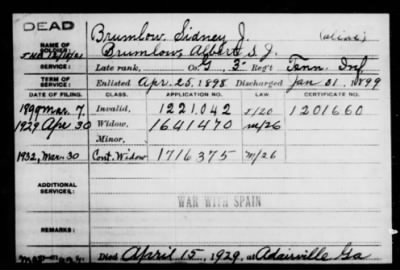 DEAD
Brumlow, Sidney J. (alias)
NAME OF SOLDIER: Brumlow, Albert S. J.
Late rank, Co. G 3 Reg't Tenn. Inf
TERM OF SERVICE: Enlisted Apr. 25, 1898 Discharged Jan 31 1899
DATE OF FILING. CLASS. APPLICATION NO. CERTIFICATE NO.
1899 Mar. 7. Invalid, 1221,042 1201660
1929, Apr 30 Widow, 1641470 M/26
Minor,
1932, Mar. 30 Cont. Widow 1716375 M/26
ADDITIONAL SERVICES: WAR WITH SPAIN
REMARKS:
Died April 15, 1929, at Adairville Ga